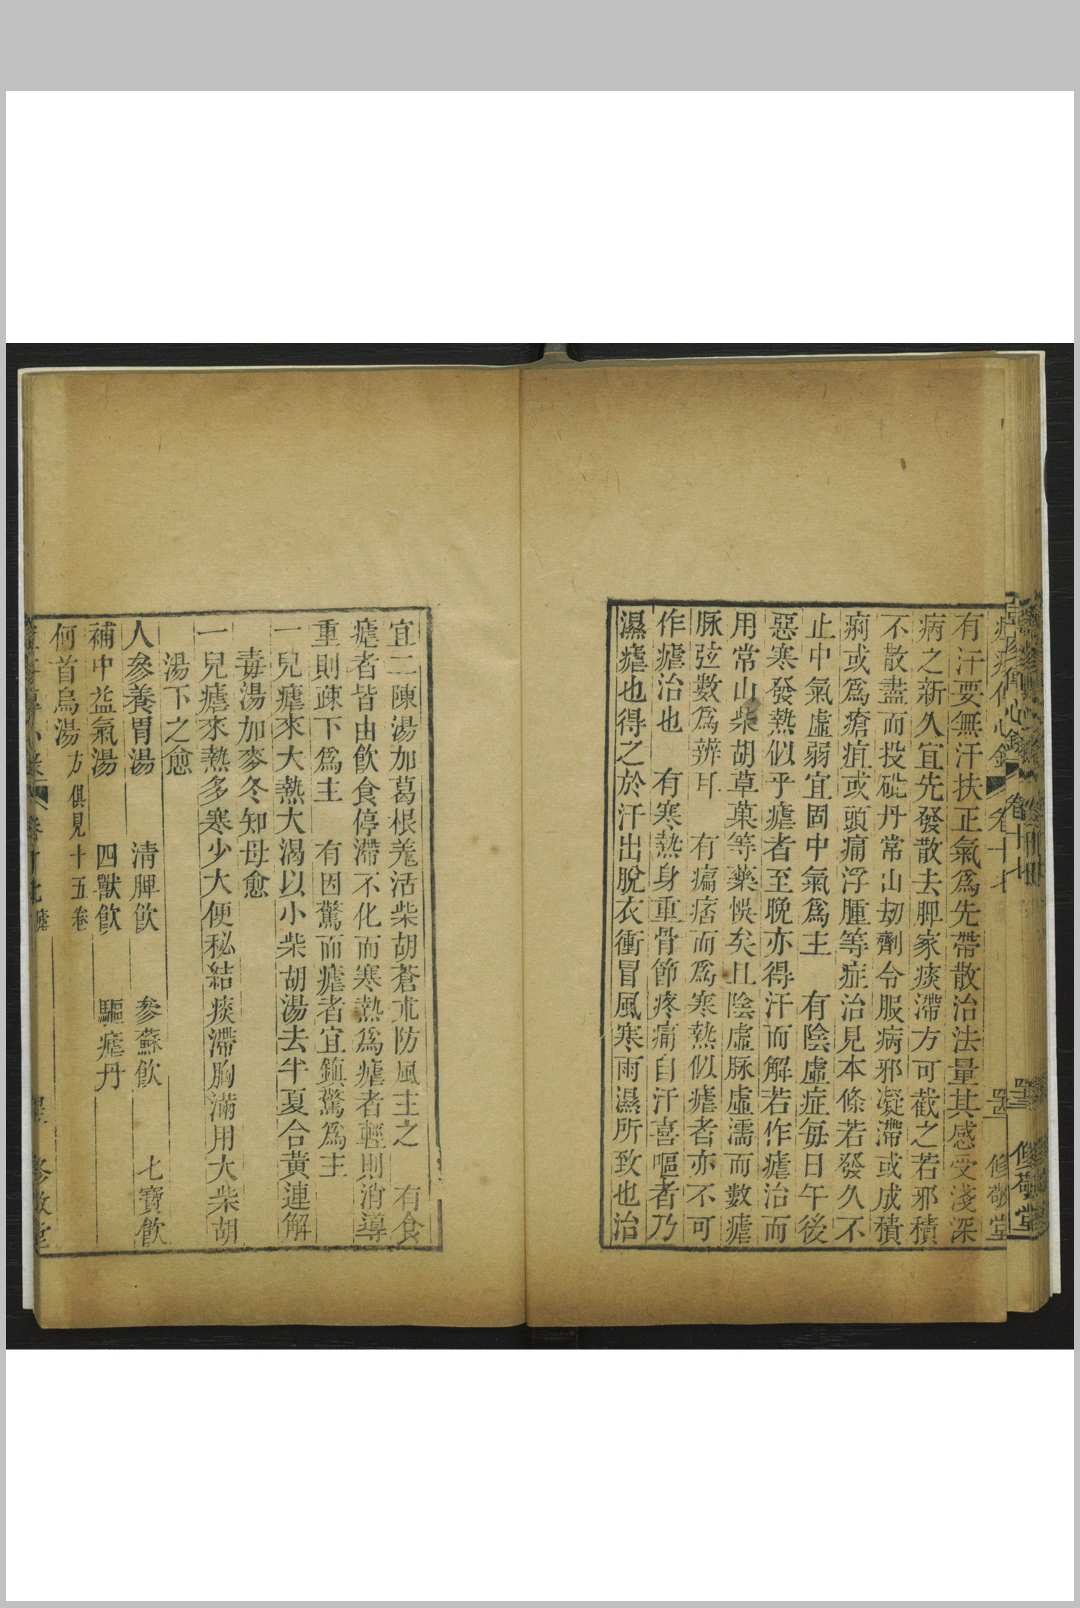 痘疹傳心錄 卷十七 修敬堂
有汗要無汗扶正氣爲先帶散治法量其感受淺深
病之新久宜先發散去脾家痰滯方可截之若邪積
不散盡而投砒丹常山刼劑令服病邪凝滯或成積
痢或爲瘡疽或頭痛浮腫等症治見本條若發久不
止中氣虛弱宜固中氣爲主 有陰虛症每日午後
惡寒發熱似乎瘧者至晚亦得汗而解若作瘧治而
用常山柴胡草菓等藥悞矣且陰虛脉虛濡而數瘧
脉弦數爲辨耳 有痛痞而爲寒熱似瘧者亦不可
作瘧治也 有寒熱身重骨節疼痛自汗喜嘔者乃
濕瘧也得之於汗出脫衣衝冒風寒雨濕所致也治
宜二陳湯加葛根羗活柴胡蒼朮防風主之 有食
瘧者皆由飲食停滯不化而寒熱爲瘧者輕則消導
重則疎下爲主 有因驚而瘧者宜鎮驚爲主
一兒瘧來大熱大渴以小柴胡湯去半夏合黃連解
毒湯加麥冬知母愈
一兒瘧來熱多寒少大便秘結痰滯胸滿用大柴胡
湯下之愈
人參養胃湯 清脾飲 參蘇飲 七寶飲
補中益氣湯 四獸飲 驅瘧丹
何首烏湯 方俱見十五卷
卷十七 瘧 修敬堂